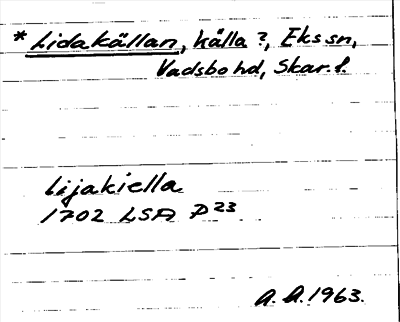 * Lidakällan, källa?, Ekssn,
Vadsbo hd, Skar. l.
Lijakiella
1702 LSA P 23
A. A. 1963.